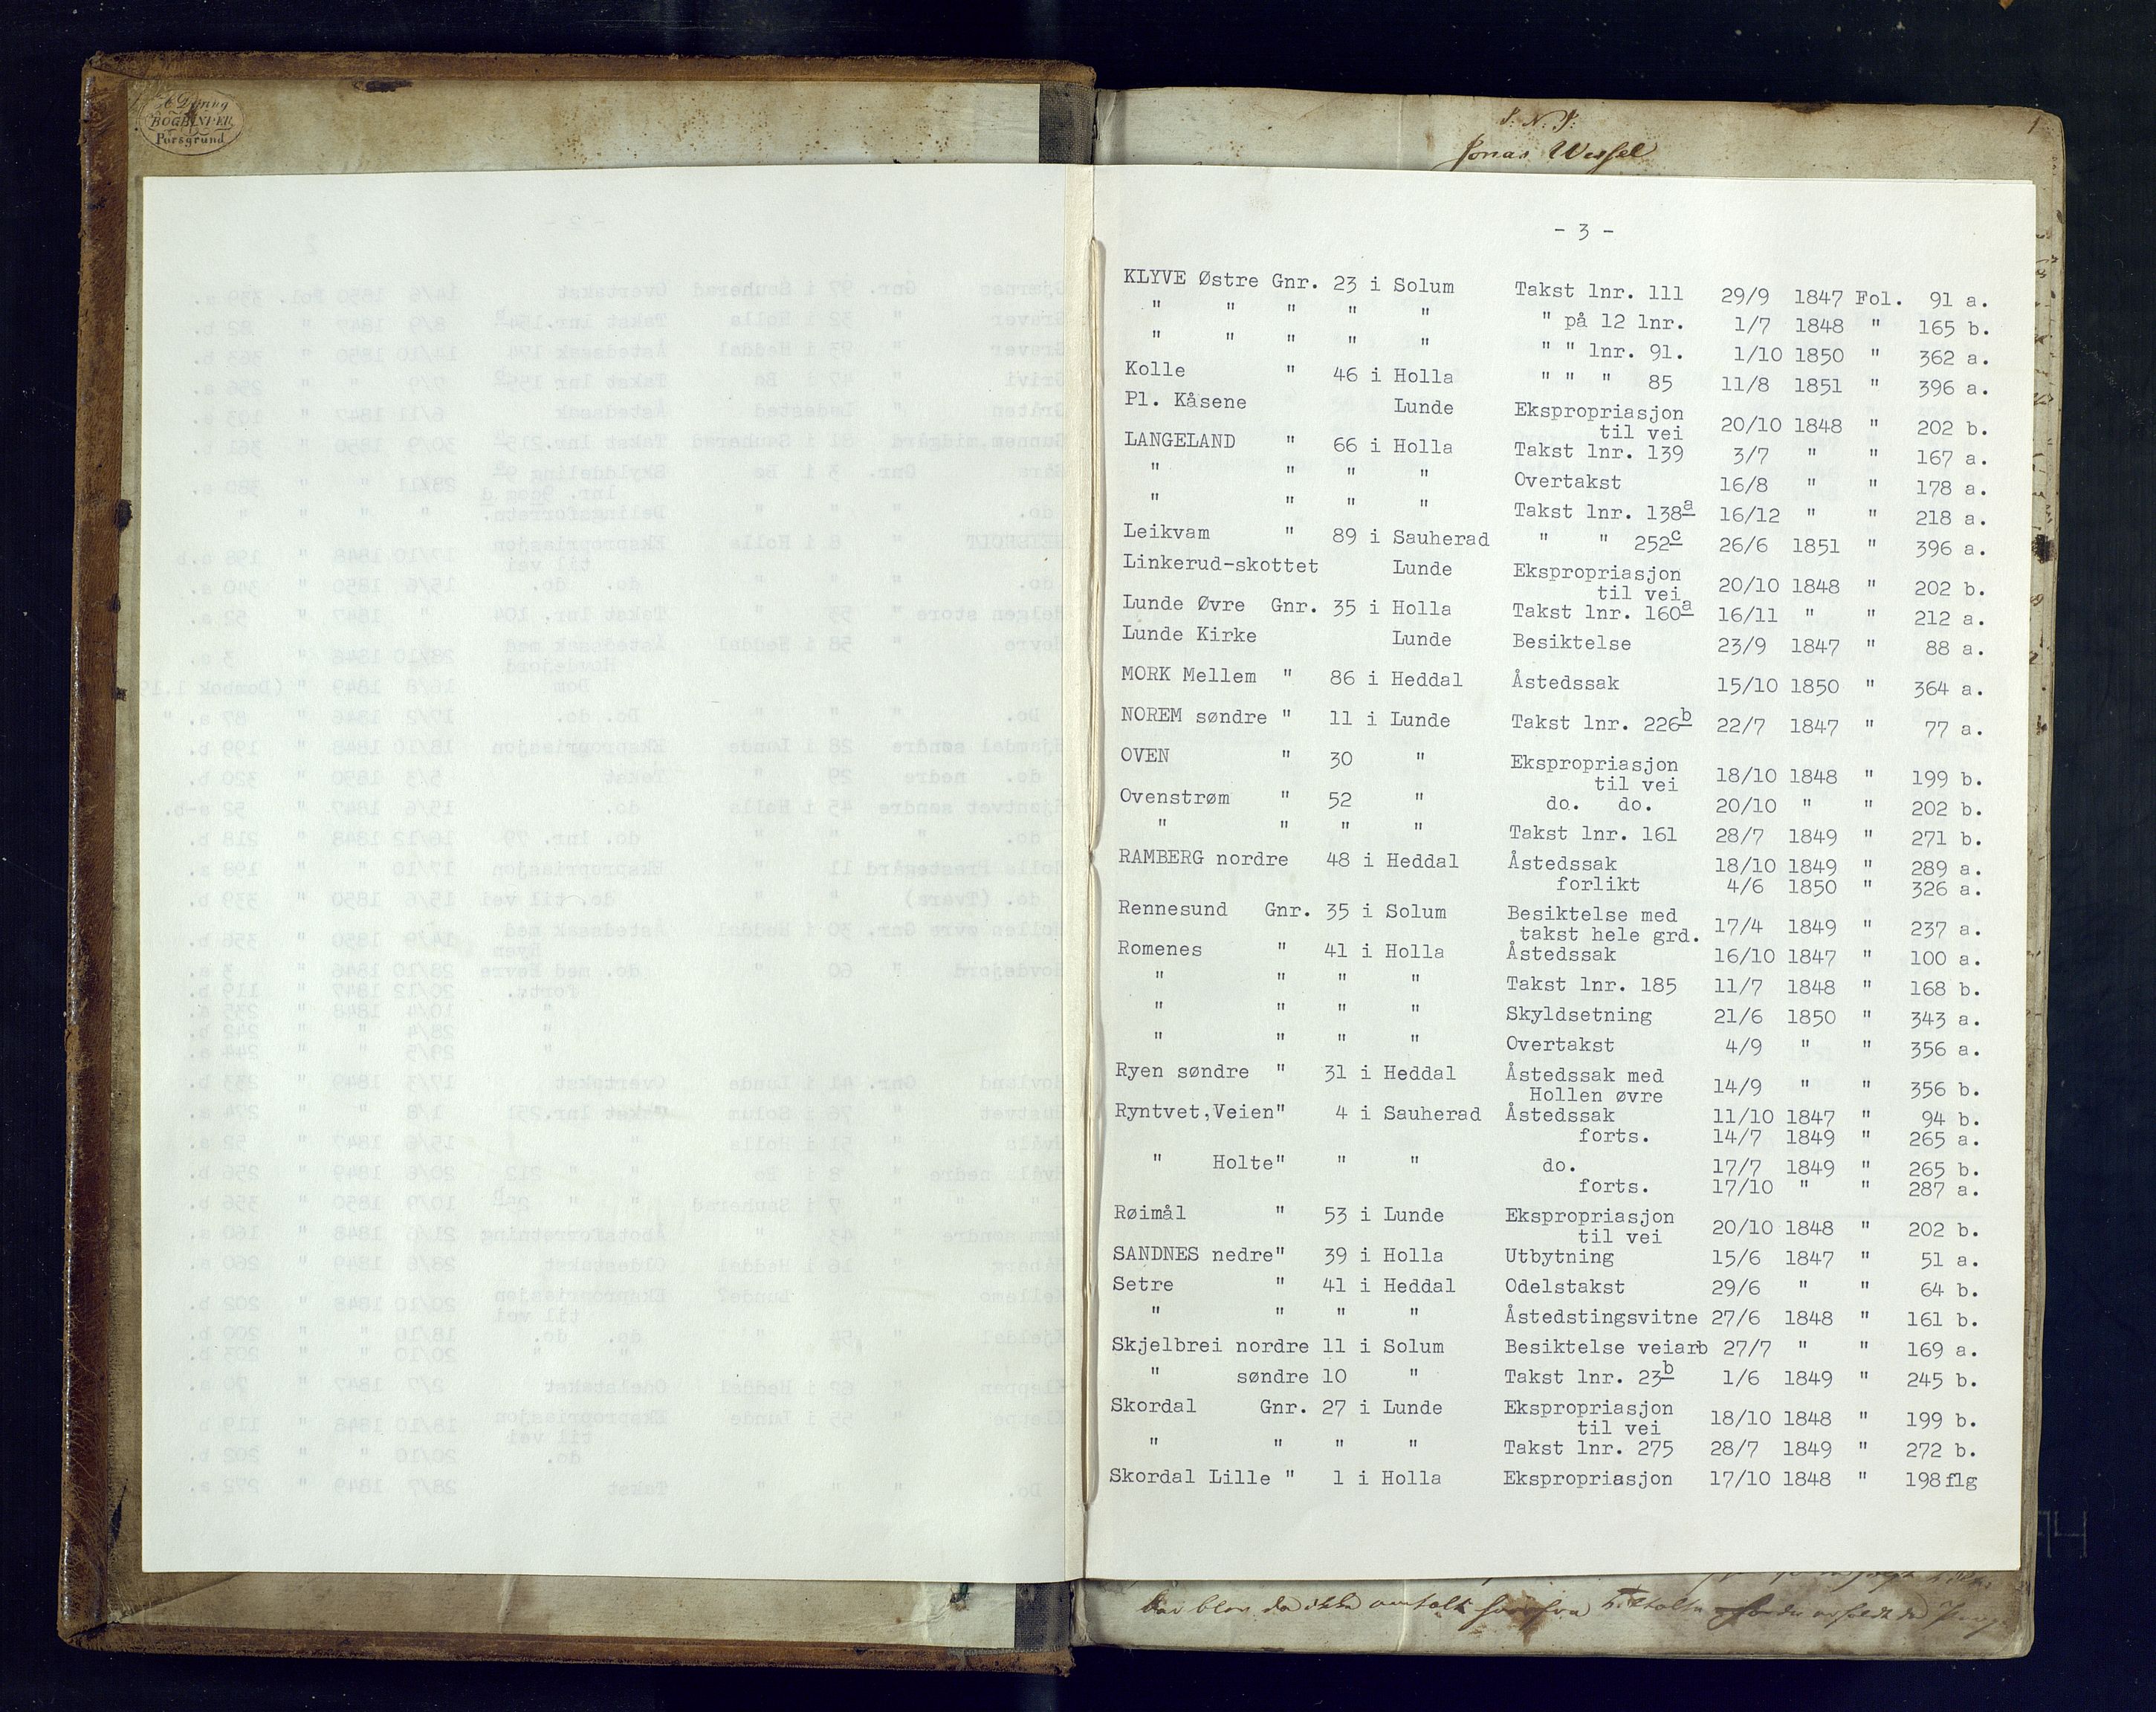 BOGBINDER
Porsgrund
J. N. J.
Jonas Wessel
1
- 3 -
KLYVE Østre Gnr. 23 i Solum Takst lnr. 111 29/9 1847 Fol. 91 a.
" " " " " " på 12 lnr. 1/7 1848 " 165 b.
" " " " " " " lnr. 91. 1/10 1850 " 362 a.
Kolle " 46 i Holla " " " 85 11/8 1851 " 396 a.
Pl. Kåsene Lunde Ekspropriasjon
til vei 20/10 1848 " 202 b.
LANGELAND " 66 i Holla Takst lnr. 139 3/7 " " 167 a.
" " " " Overtakst 16/8 " " 178 a.
" " " " Takst lnr. 138a 16/12 " " 218 a.
Leikvam " 89 i Sauherad " " 252c 26/6 1851 " 396 a.
Linkerud-skottet Lunde Ekspropriasjon
til vei 20/10 1848 " 202 b.
Lunde Øvre Gnr. 35 i Holla Takst lnr. 160a 16/11 " " 212 a.
Lunde Kirke Lunde Besiktelse 23/9 1847 " 88 a.
MORK Mellem " 86 i Heddal Åstedssak 15/10 1850 " 364 a.
NOREM søndre " 11 i Lunde Takst lnr. 226b 22/7 1847 " 77 a.
OVEN " 30 " Ekspropriasjon
til vei 18/10 1848 " 199 b.
Ovenstrøm " 52 " do. do. 20/10 " " 202 b.
" " " " Takst lnr. 161 28/7 1849 " 271 b.
RAMBERG nordre 48 i Heddal Åstedssak 18/10 1849 " 289 a.
forlikt 4/6 1850 " 326 a.
Rennesund Gnr. 35 i Solum Besiktelse med
takst hele grd. 17/4 1849 " 237 a.
Romenes " 41 i Holla Åstedssak 16/10 1847 " 100 a.
" " " " Takst lnr. 185 11/7 1848 " 168 b.
" " " " Skyldsetning 21/6 1850 " 343 a.
" " " " Overtakst 4/9 " " 356 a.
Ryen søndre " 31 i Heddal Åstedssak med
Hollen øvre 14/9 " " 356 b.
Ryntvet,Veien" 4 i Sauherad Åstedssak 11/10 1847 " 94 b.
forts. 14/7 1849 " 265 a.
" Holte" " " do. 17/7 1849 " 265 b.
forts. 17/10 " " 287 a.
Røimål " 53 i Lunde Ekspropriasjon
til vei 20/10 1848 " 202 b.
SANDNES nedre" 39 i Holla Utbytning 15/6 1847 " 51 a.
Setre " 41 i Heddal Odelstakst 29/6 " " 64 b.
" " " " Åstedstingsvitne 27/6 1848 " 161 b.
Skjelbrei nordre 11 i Solum Besiktelse veiarb 27/7 " " 169 a.
" søndre 10 " Takst lnr. 23b 1/6 1849 " 245 b.
Skordal Gnr. 27 i Lunde Ekspropriasjon
til vei 18/10 1848 " 199 b.
" " " " Takst lnr. 275 28/7 1849 " 272 b.
Skordal Lille " 1 i Holla Ekspropriasjon 17/10 1848 " 198flg